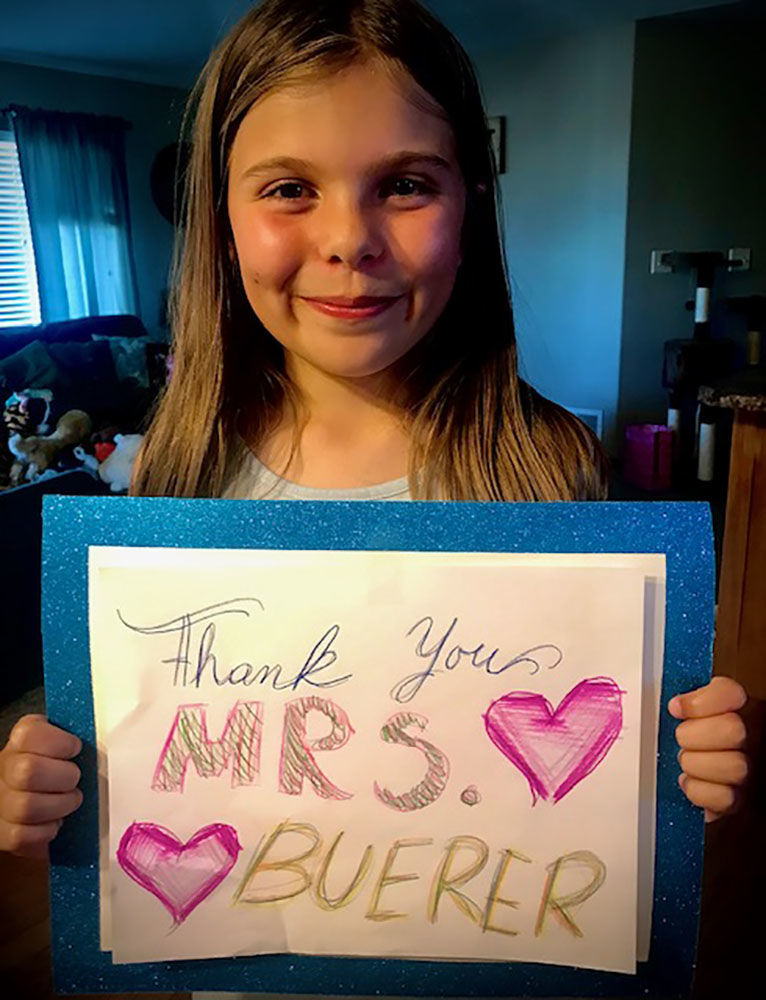 Thank You
MRS.
BUERER